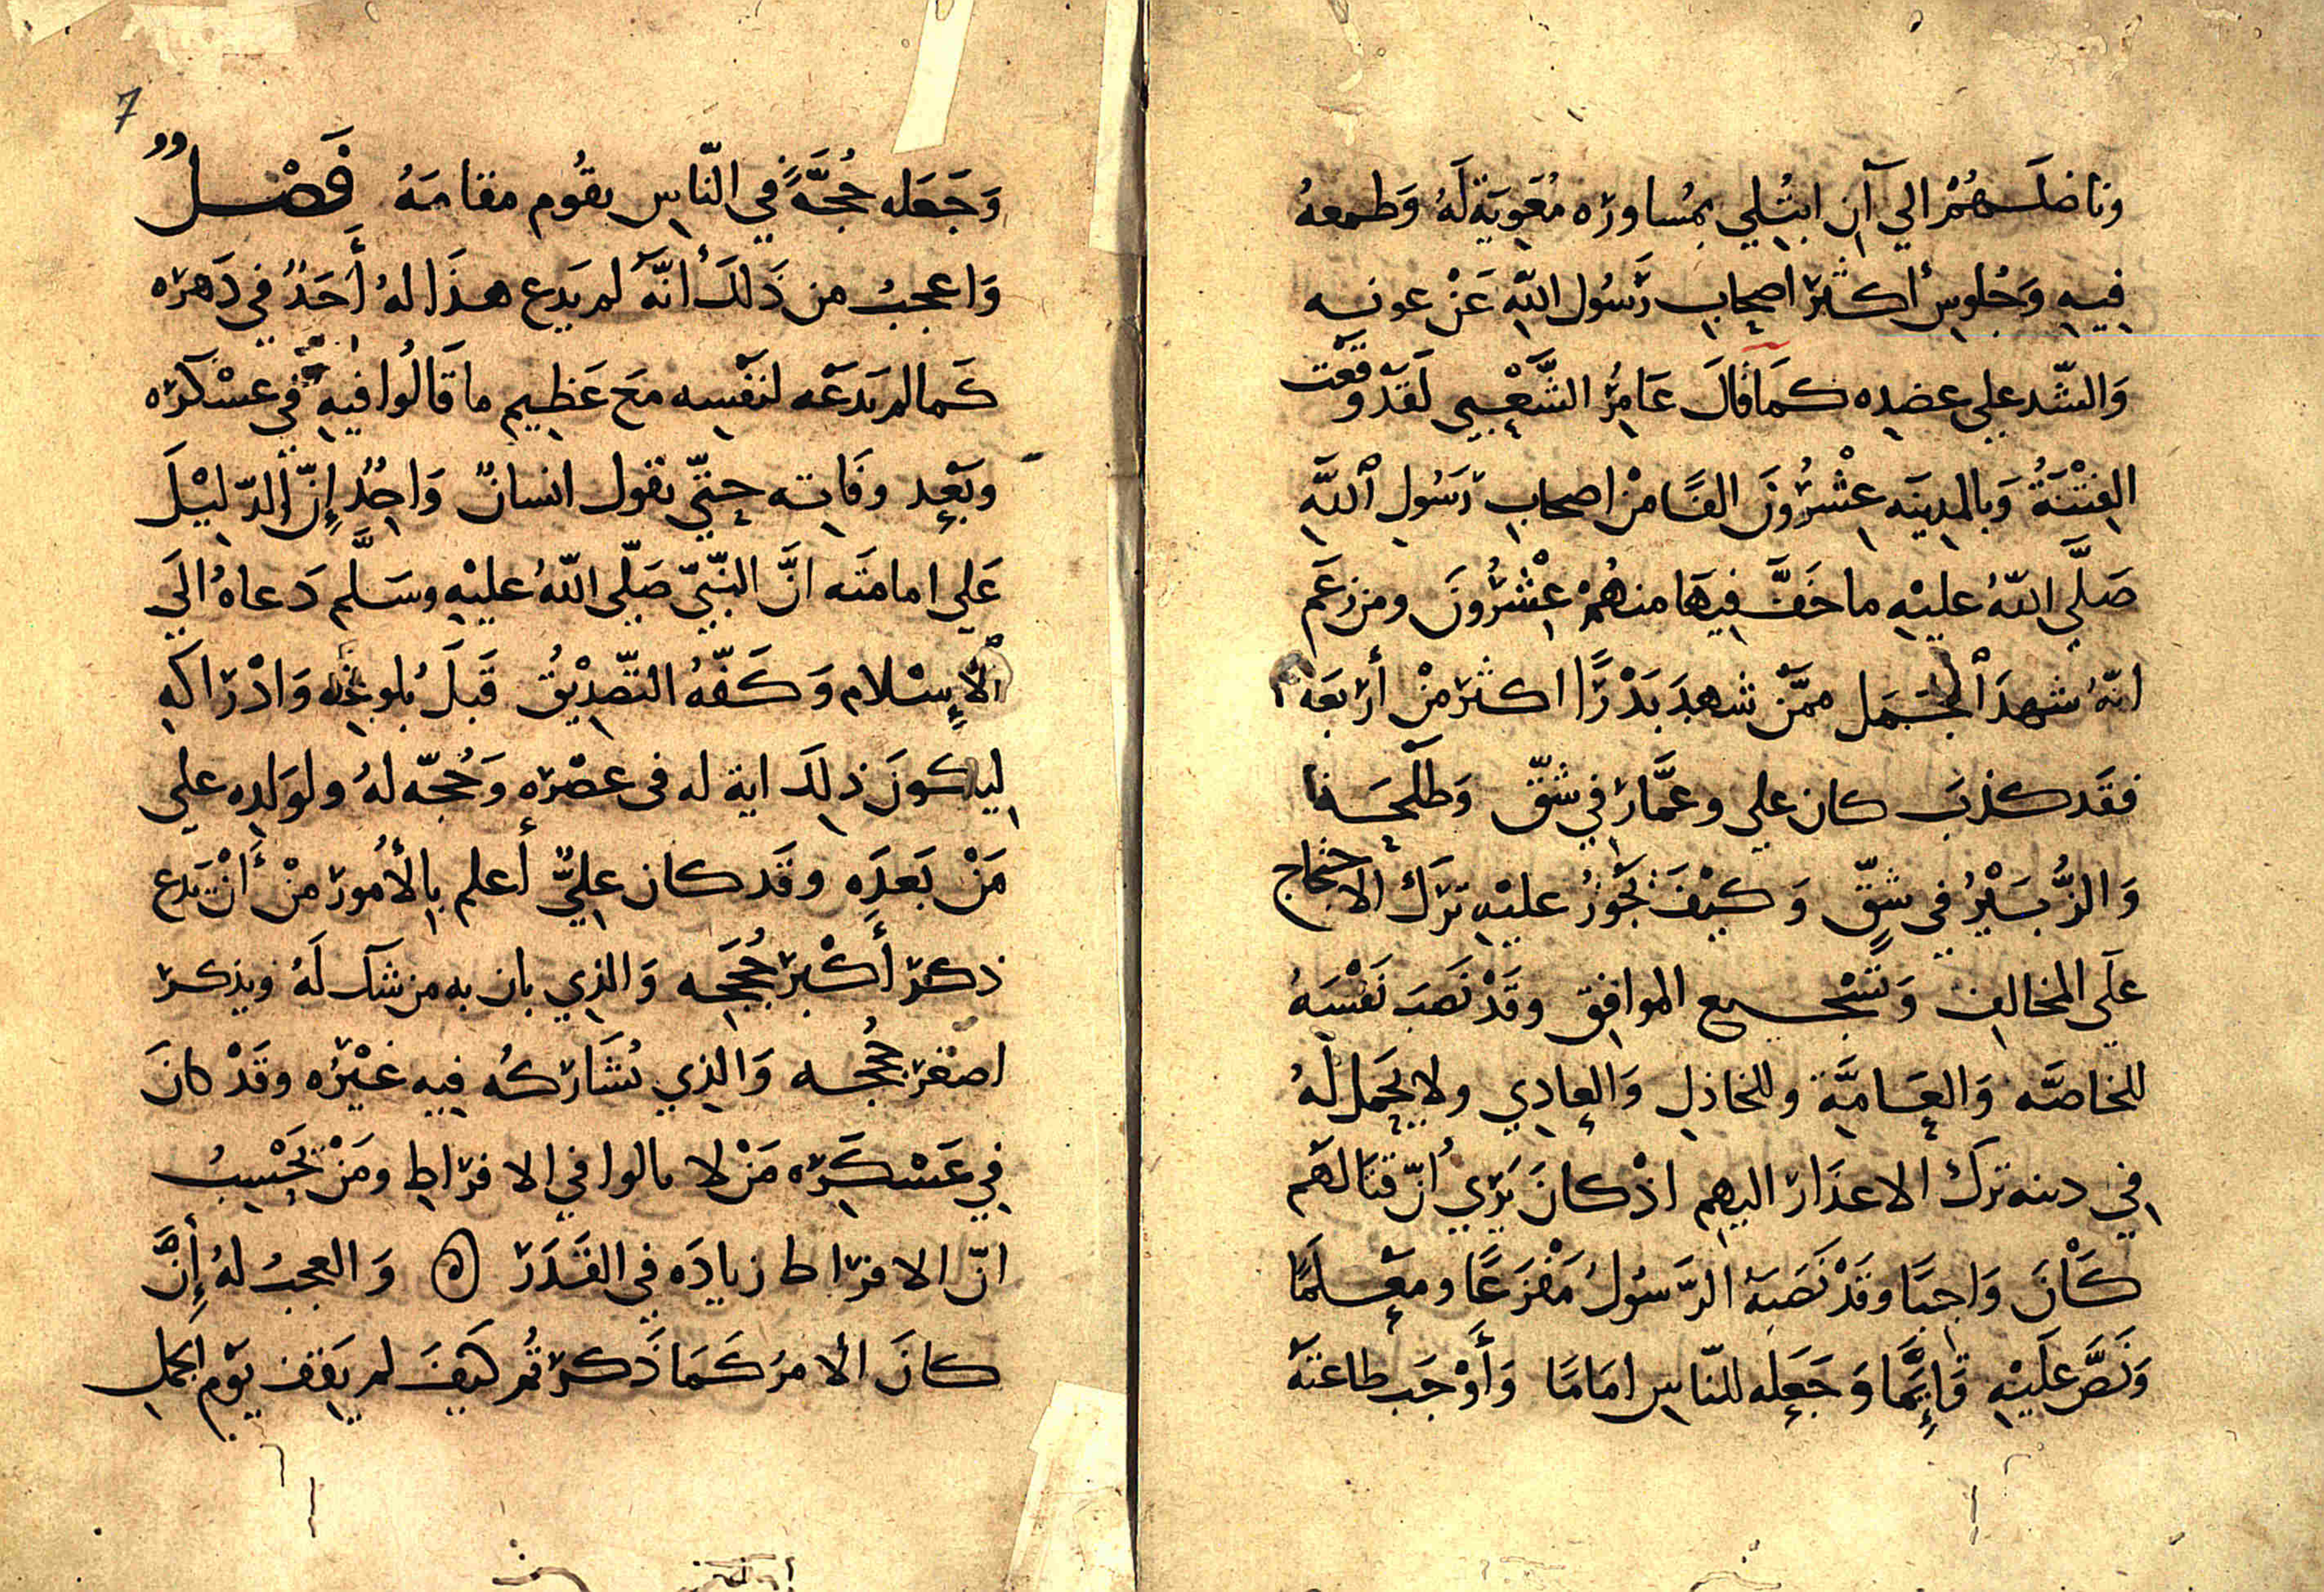 وناضلَهُمْ الي آن ابتُلي بمُساورة مُعَوِيَة لَهُ وَطمعهُ
فِيهِ وَجُلوسِ أكثرَ اصحابِ رَسُول اللهِ عَنْ عونه
وَالشّد علي عضدِه كمَا قالَ عَامِرُ الشَّعْبِي لَقَدْ وقَعَت
الفِتْنَةُ وَبالمدِينَه عِشْرُونَ الفًا مِنْ اصحابِ رَسُولِ اللَّهِ
صَلَّي اللهُ عليْهِ ما خَفَّ فِيهَا منهُمْ عِشْرُونَ ومن زعَم
انهُ شهدَ الْجَمَل ممَّنْ شهِدَ بَدْرًا اكثر مِنْ أربَعَه
فقَد كذبَ كان علي وعمَّار في شقّ وَطلْحَه
وَالزُّبَيْرُ في شقٍّ وَكيْفَ يَجُوزُ عليْهِ تَرَك الاحتجاج
علَي المخالِفِ وَتَشْجيع الموافِق وقَدْ نَصَبَ نَفْسَهُ
للخاصّه وَالعَامّة وللخاذلِ وَالعادِي ولا يحَمل لَهُ
في دىنه ترَك الاعذَار اليهِم اذْ كانَ يَرَي انّ قتَالهَم
كَانَ وَاجِبًا وقَدْ نَصَبَهُ الرَّسُولُ مَفْزَعًا ومعَلَمًا
وَنَصَّ علَيْهِ قَائِمًا وَجَعله للنّاسِ امَامًا وَأَوْجَب طاعتهُ
7
وَجَعَله حُجَّةً في النّاسِ يقُوم مقامَهُ فَصْلٌ
وَاعجبُ من ذَلكَ أنّهُ لم يَدَع هذَا لهُ أحَدٌ في دَهره
كَما لم يَدعَه لنفْسِه مَع عَظِيمِ ما قَالُوا فيهِ في عسْكره
وبَعْدِ وفَاتِه حتّي تقول انسانٌ وَاحِدٌ إنّ الدّلِيْلَ
عَلي امامَته انَّ النّبيّ صَلّي اللهُ عليْهِ وسَلَّم دَعاهُ الَي
الْإسْلام وَكَلّفَهُ التّصدِيْقُ قَبلَ بلوغه وَادْرَاكه
لِيكونَ ذلِكَ اية له في عصْره وَحُجّه لهُ ولوَلدِه علي
مَنْ بَعدَه وقَد كان عليٌّ أعلم بالأمُور مِنْ أنْ يَدع
ذكرَ أكبَر حُجَجه وَالذِي بان به من شكلَهُ ويذكر
اصغَرَ حُجَجه وَالذِي يُشَاركُه فِيهِ غَيْرُه وقَدْ كانَ
في عَسْكَره مَنْ لا يالوا في الافرَاطِ ومَنْ يَحْسِبُ
انّ الافرَاط زيادَه في القَدَر ه وَالعجبُ لهُ إنَّ
كانَ الأمرُ كَمَا ذَكرتم كَيفَ لم يَقِف يَوم الجملِ